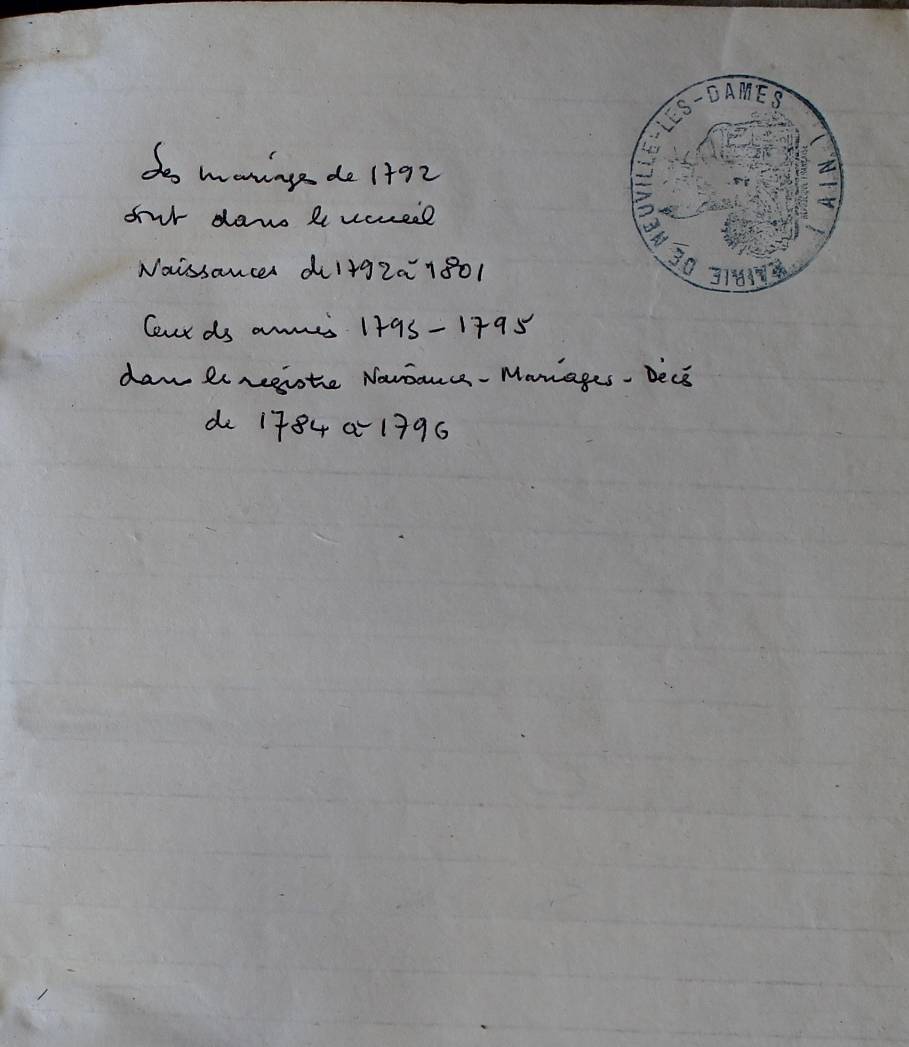 Les mariages de 1792
sont dans le recueil
Naissances de 1792 à 1801
Ceux des années 1793 - 1795
dans le registre Naissances - Mariages - Décès
de 1784 à 1796
MAIRIE DE NEUVILLE-LES-DAMES (AIN)
RÉPUBLIQUE FRANÇAISE